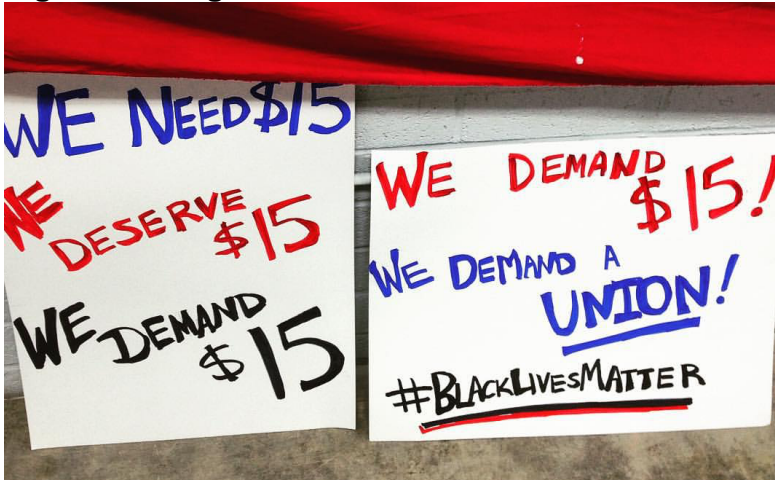 WE NEED $15
WE DESERVE $15
WE DEMAND $15
WE DEMAND $15!
WE DEMAND A
UNION!
#BLACKLIVESMATTER